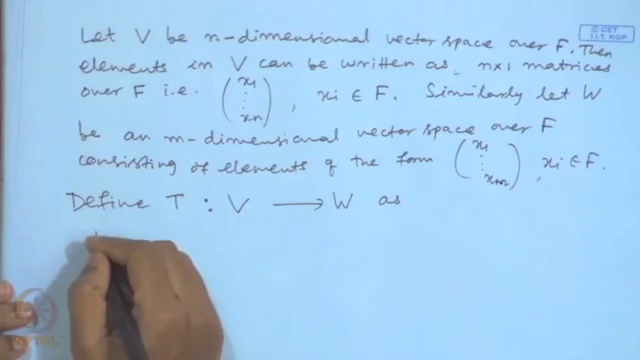 © CET
I.I.T. KGP
Let V be n-dimensional vector space over F. Then
elements in V can be written as, n×1 matrices
over F i.e. (x1 ⋮ xn), xi ∈ F. Similarly let W
be an m-dimensional vector space over F
consisting of elements of the form (x1 ⋮ xm), xi ∈ F.
Define T : V ⟶ W as
NPTEL